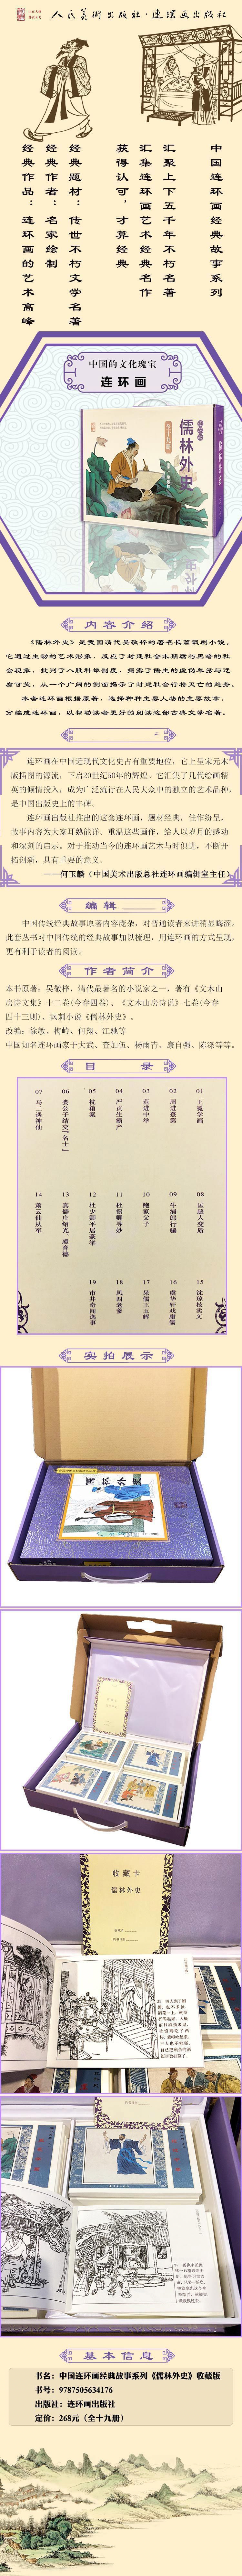 人民美術出版社·連環画出版社
中国连环画经典故事系列
汇聚上下五千年不朽名著
汇集连环画艺术经典名作
获得认可，才算经典
经典题材：传世不朽文学名著
经典作者：名家绘制
经典作品：连环画的艺术高峰
中国的文化瑰宝
连环画
儒林外史
内容介绍
《儒林外史》是我国清代吴敬梓的著名长篇讽刺小说。
它通过生动的艺术形象，反应了封建社会末期腐朽黑暗的社
会现象，批判了八股科举制度，揭露了儒生的虚伪卑污与迂
腐可笑，从一个广阔的侧面揭示了封建社会行将灭亡的趋势。
本套连环画根据原著，选择种种主要人物的主要故事，
分编成连环画，以帮助读者更好的阅读这部古典文学名著。
连环画在中国近现代文化史占有重要地位，它上呈宋元木
版插图的源流，下启20世纪50年的辉煌。它汇集了几代绘画精
英的倾情投入，成为广泛流行在人民大众中的独立的艺术品种，
是中国出版史上的丰碑。
连环画出版社推出的这套连环画，题材经典，佳作纷呈，
故事内容为大家耳熟能详。重温这些画作，给人以岁月的感动
和深刻的启示。对于推动当今的连环画艺术与时俱进，不断开
拓创新，具有重要的意义。
——何玉麟（中国美术出版总社连环画编辑室主任）
编辑
中国传统经典故事原著内容庞杂，对普通读者来讲稍显晦涩。
此套丛书对中国传统的经典故事加以梳理，用连环画的方式呈现，
更有利于读者的阅读。
作者简介
本书原著：吴敬梓，清代最著名的小说家之一，著有《文木山
房诗文集》十二卷(今存四卷)、《文木山房诗说》七卷(今存
四十三则)、讽刺小说《儒林外史》。
改编：徐敏、梅岭、何翔、江驰等
中国知名连环画家于大武、查加伍、杨雨青、康自强、陈涤等等。
目录
01 王冕学画
02 周进登第
03 范进中举
04 严贡生霸产
05 枕箱案
06 娄公子结交「名士」
07 马二遇神仙
08 匡超人变质
09 牛浦郎行骗
10 鲍家父子
11 杜慎卿寻妙
12 杜少卿平居豪举
13 真儒庄绍光、虞育德
14 萧云仙从军
15 沈琼枝卖文
16 虞华轩戏唐儒
17 呆儒王玉辉
18 凤四老爹
19 市井奇闻逸事
实拍展示
儒林外史
收藏卡
儒林外史
基本信息
书名：中国连环画经典故事系列《儒林外史》收藏版
书号：9787505634176
出版社：连环画出版社
定价：268元（全十九册）